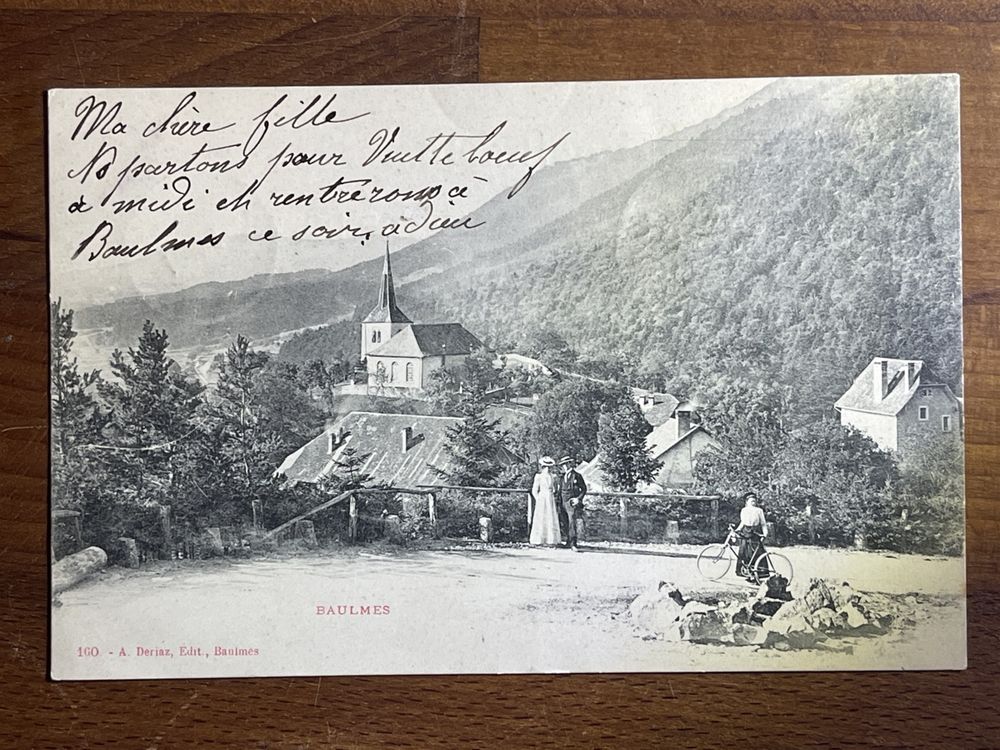 Ma chère fille
Ns partons pour Vuitteboeuf
à midi et rentrérons à
Baulmes ce soir, adieu
BAULMES
160 - A. Deriaz, Edit., Baulmes